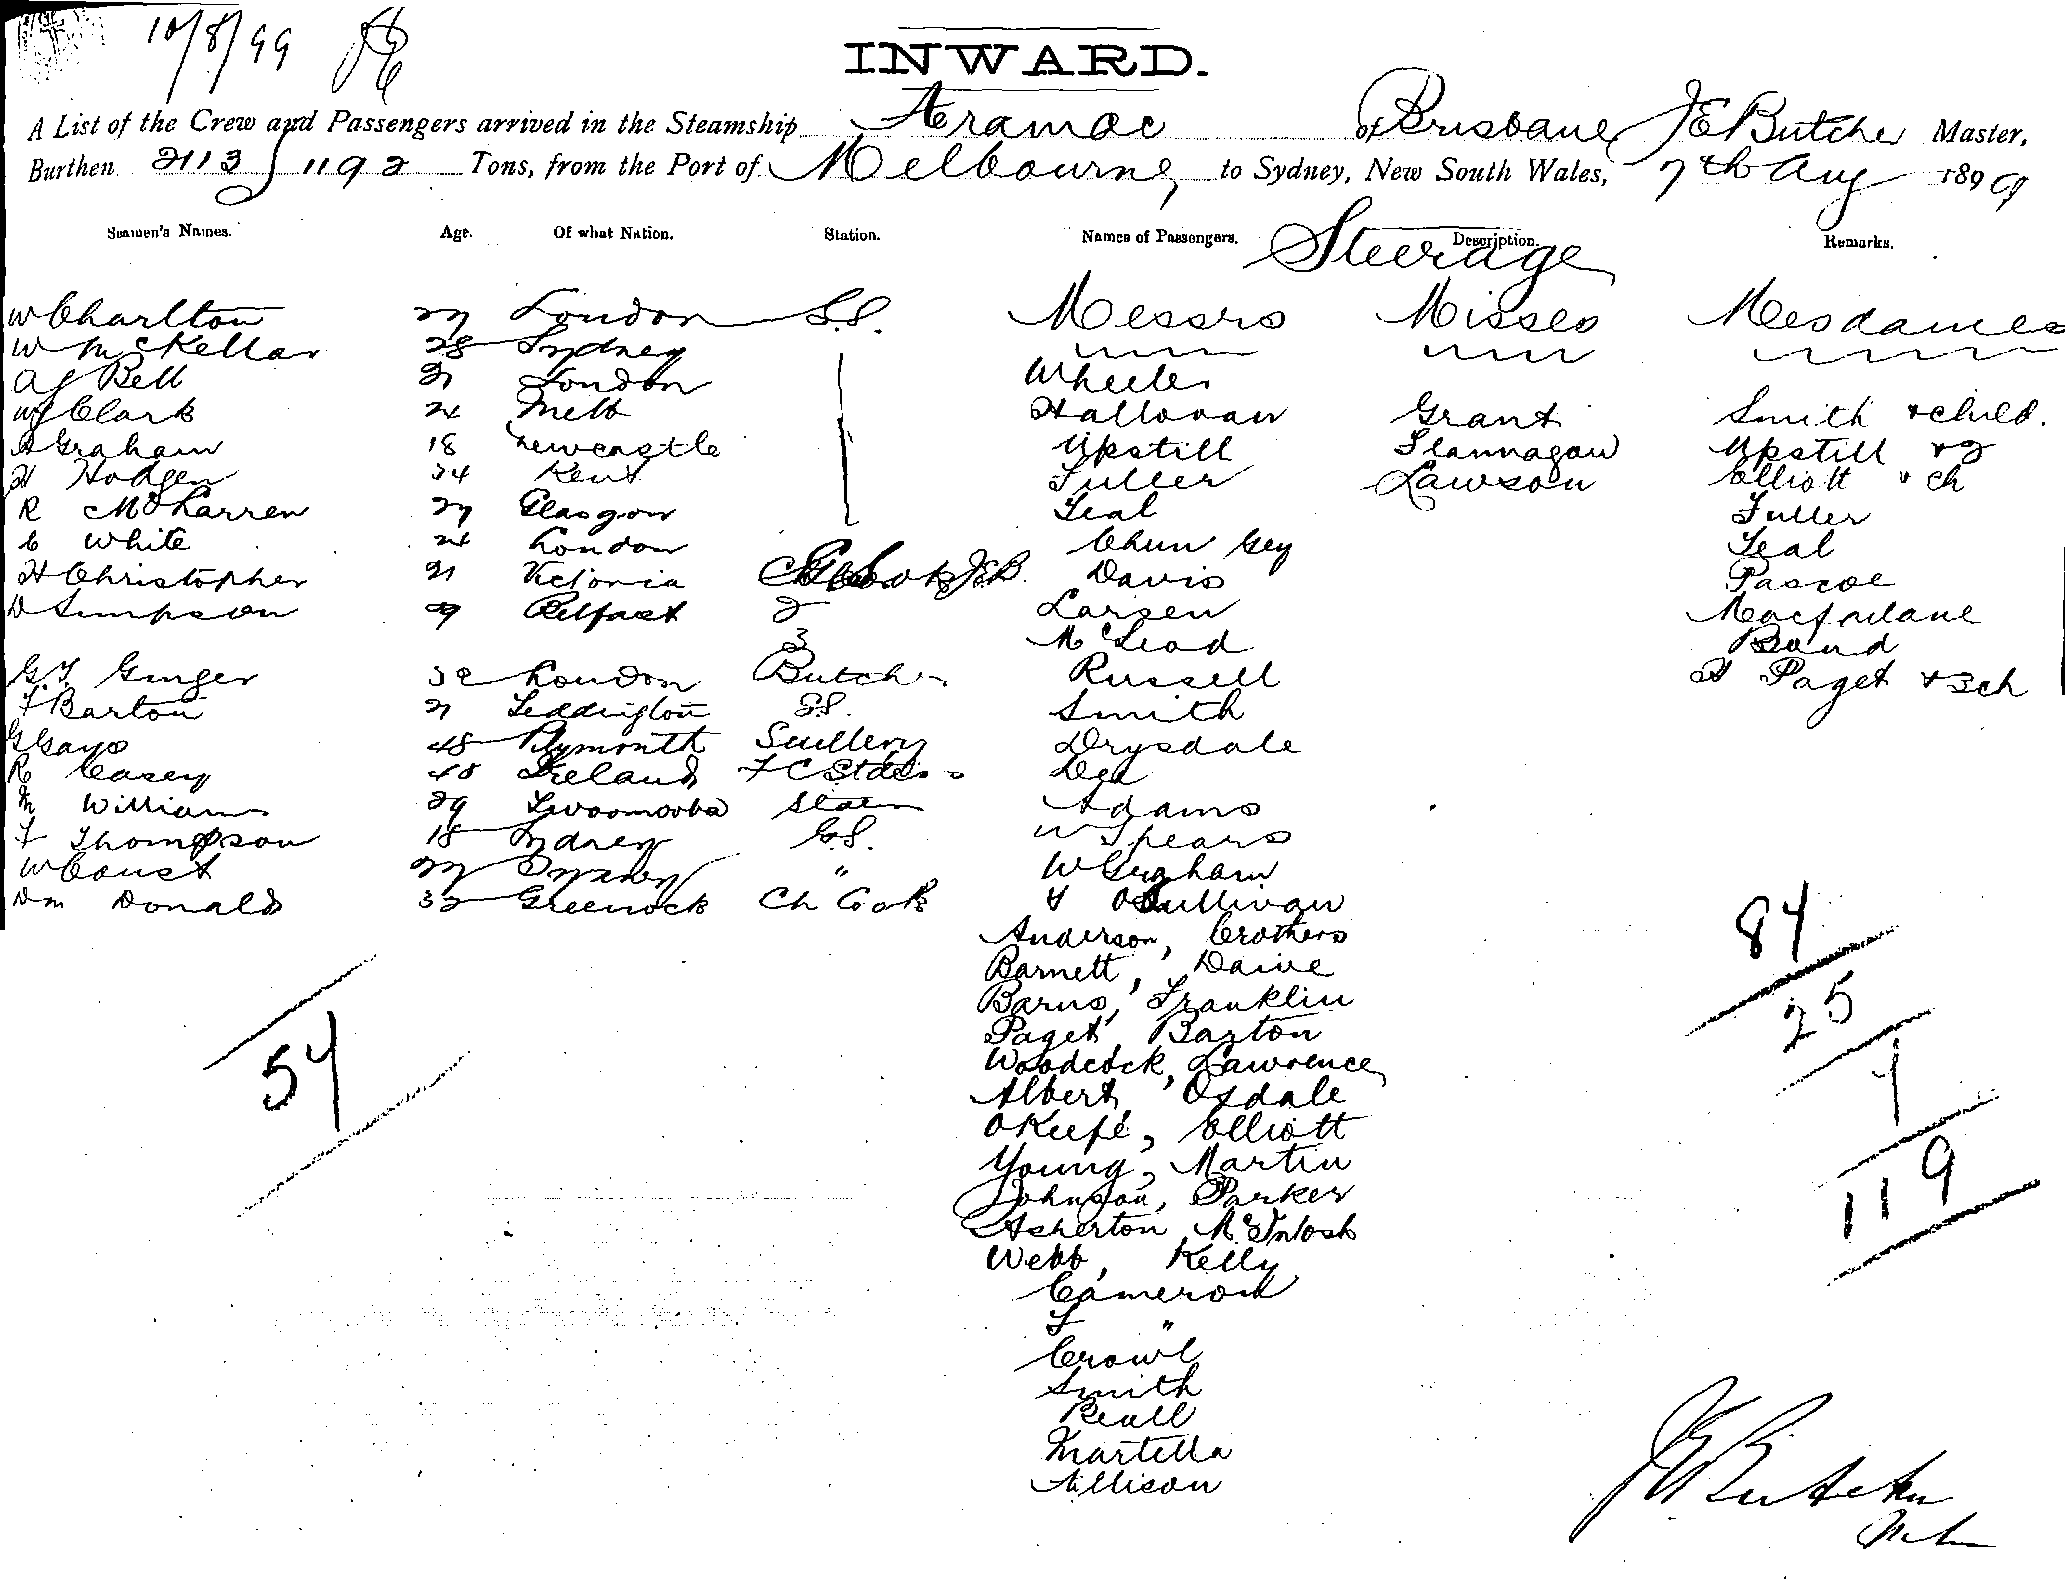 10/8/99
INWARD.
A List of the Crew and Passengers arrived in the Steamship Aramac of Brisbane, J E Butcher Master,
Burthen 2113 / 1192 Tons, from the Port of Melbourne, to Sydney, New South Wales, 7th Aug 1899
Seamen's Names. Age. Of what Nation. Station. Names of Passengers. Description. Remarks.
Steerage
W Charlton 27 London S.S. Messrs Misses Mesdames
W McKellar 28 Sydney
A J Bell 21 London Wheeler
W J Clark 24 Melb Halloran Grant Smith & child.
A Graham 18 Newcastle Upstill Flannagan Upstill & 2
H Hodgen 24 Kent Fuller Lawson Elliott & ch
R 27 Glasgow Leal Fuller
C White 24 London Chun Gey Leal
H Christopher 21 Victoria Davis Pascoe
D Simpson 29 Belfast 2 Larsen Macfarlane
3 McLeod Bond
G F Ginger 32 London Butcher Russell H Paget & 3 ch
F Barton 21 Teddington S.S. Smith
G Gays 48 Plymouth Scullery Drysdale
R Casey 40 Ireland F C Dea
M Williams 29 Toowoomba Adams
F Thompson 18 Sydney G.S. W Spears
W Coust 27 Sydney " W Graham
Dm Donald 32 Greenock Ch Cook & O'Sullivan
Anderson, Crothers
Barnett, Daive
Barns, Franklin
Paget, Barton
Woodcock, Lawrence,
Albert, Oxdale
O'Keefe, Elliott
Young, Martin
Johnson, Parker
Asherton, McIntosh
Webb, Kelly
Cameron
F "
Crowl
Smith
Reull
Martella
Allison
54
84
25
1
119
J E Butcher